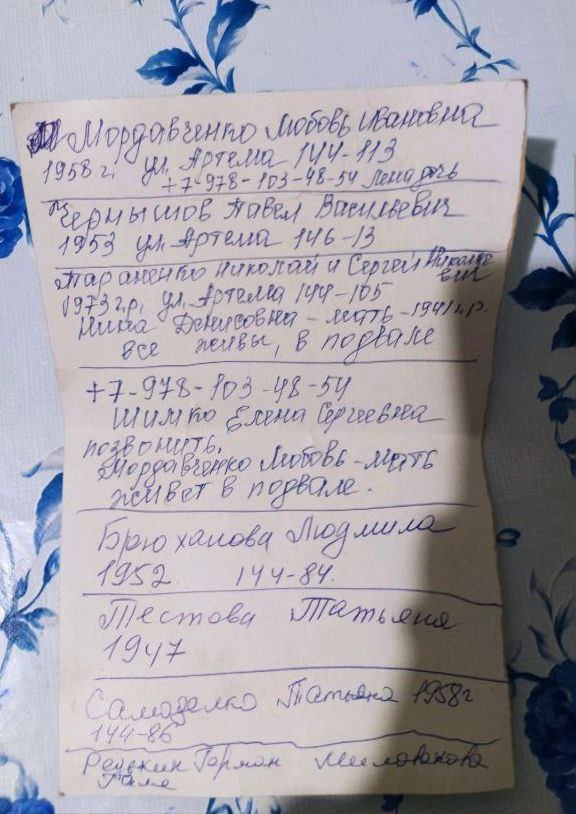 Мордавченко Любовь Ивановна
1958 г. ул. Артема 144-113
+7-978-103-48-54 Лена дочь
Чернышов Павел Васильевич
1953 ул. Артема 146-13
Тараненко Николай и Сергей
1973 г.р. ул. Артема 144-105
Нина Денисовна - мать - 1941 г.р.
все живы, в подвале
+7-978-103-48-54
Шимко Елена Сергеевна
позвонить.
Мордавченко Любовь - мать
живет в подвале.
Брюханова Людмила
1952 144-84.
Тестова Татьяна
1947
Самоделко Татьяна 1958г
144-86
Герман